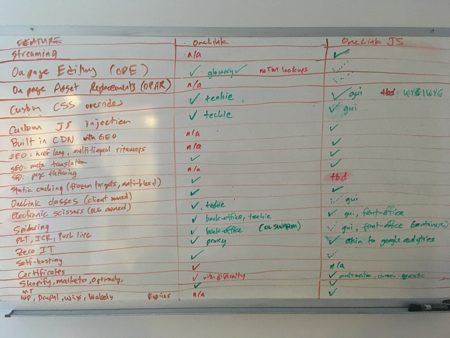 FEATURE OneLink OneLink JS
Streaming n/a ✓
On page Editing (OPE) ✓ glossary ✓ no TM lookups
On page Asset Replacements (OPAR) n/a
Custom CSS overrides ✓ techie ✓ gui tbd: WYSIWYG
Custom JS injection ✓ techie ✓ gui
Built in CDN with GEO n/a ✓
SEO: href lang, multilingual sitemaps n/a ✓
SEO: meta translation ✓ ✓
SEO: page n/a
Static caching (frozen targets, anti-bleed) ✓ tbd
OneLink classes (client owned) ✓ ✓
Electronic scissors (OLE owned) ✓ techie ✓ gui
Spidering ✓ back-office, techie ✓ gui, front-office
PLT, ICR, Push live ✓ back-office ✓ gui, front-office
Zero IT ✓ proxy ✓ akin to google analytics
Self-hosting ✓
Certificates ✓ n/a
Shopify, marketo, optimizely, ✓ difficulty ✓
Drupal, wix, Weebly n/a ✓